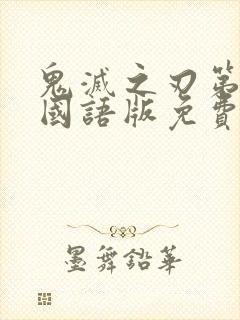 鬼滅之刃第
國語版免費
墨舞鉛華